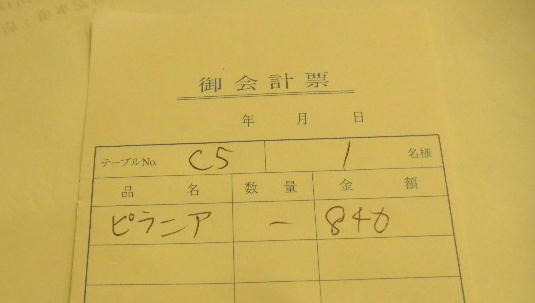 御会計票
年 月 日
テーブルNo. C5 1 名様
品名 数量 金額
ピラニア 一 840